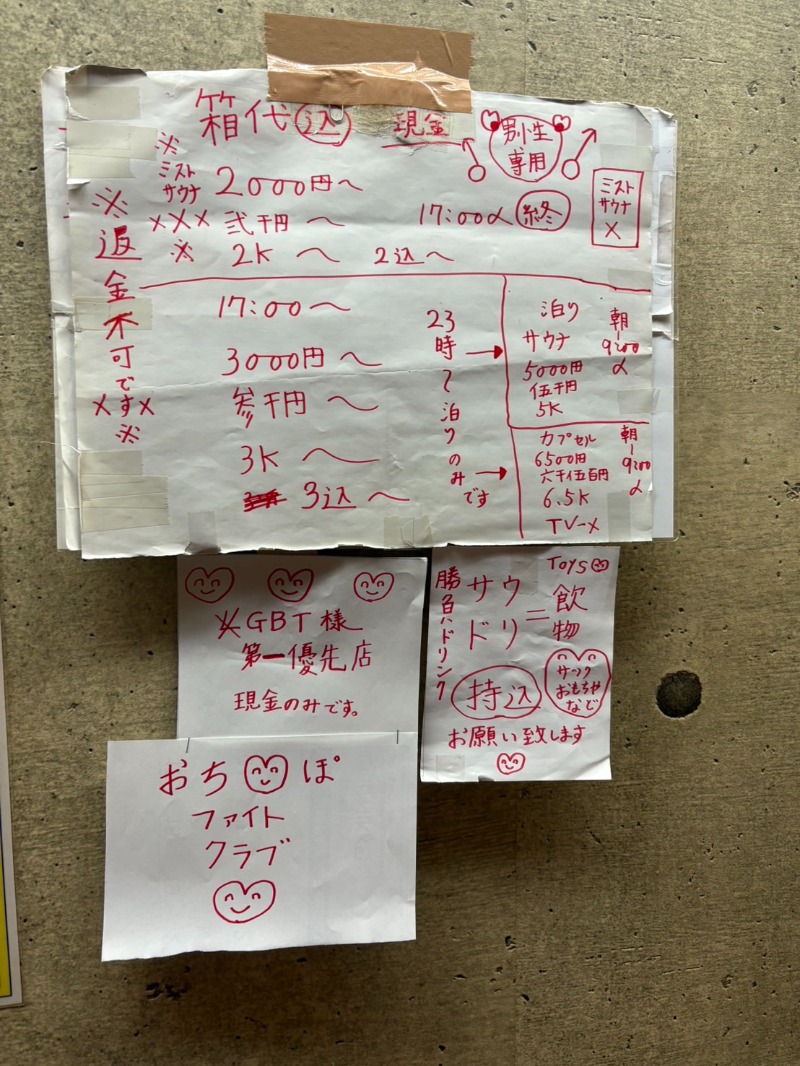 箱代込 現金
男性
専用
※
ミスト
サウナ
2000円〜
×××
弐千円〜
17:00〆 終
※
2K〜 2込〜
ミスト
サウナ
×
※返金不可です
×××
※
17:00〜
3000円〜
参千円〜
3K〜
3込〜
23時〜泊りのみです
→
泊り
サウナ
5000円
伍千円
5K
朝-9:00〆
→
カプセル
6500円
六千伍百円
6.5K
TV-×
朝-9:00〆
GBT様
第一優先店
現金のみです。
おち ぽ
ファイト
クラブ
Toys
勝負ドリンク
サウ
ドリ
=
飲物
持込
サック
おもちゃ
など
お願い致します